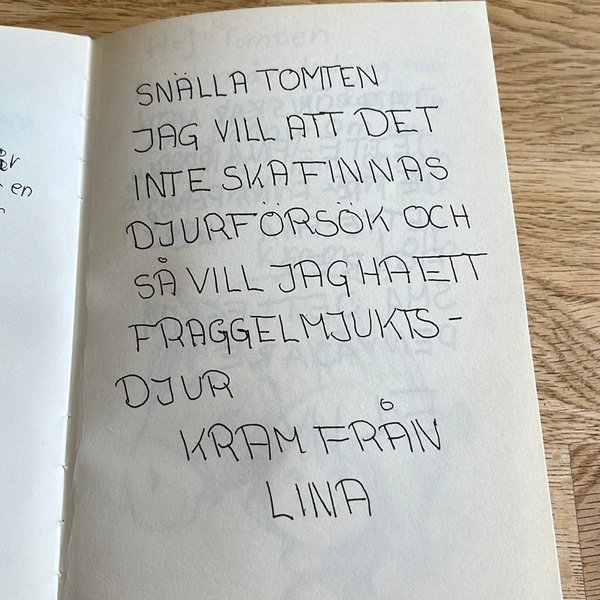 SNÄLLA TOMTEN
JAG VILL ATT DET
INTE SKA FINNAS
DJURFÖRSÖK OCH
SÅ VILL JAG HA ETT
FRAGGELMJUKTS-
DJUR
KRAM FRÅN
LINA
Hej Tomten
en